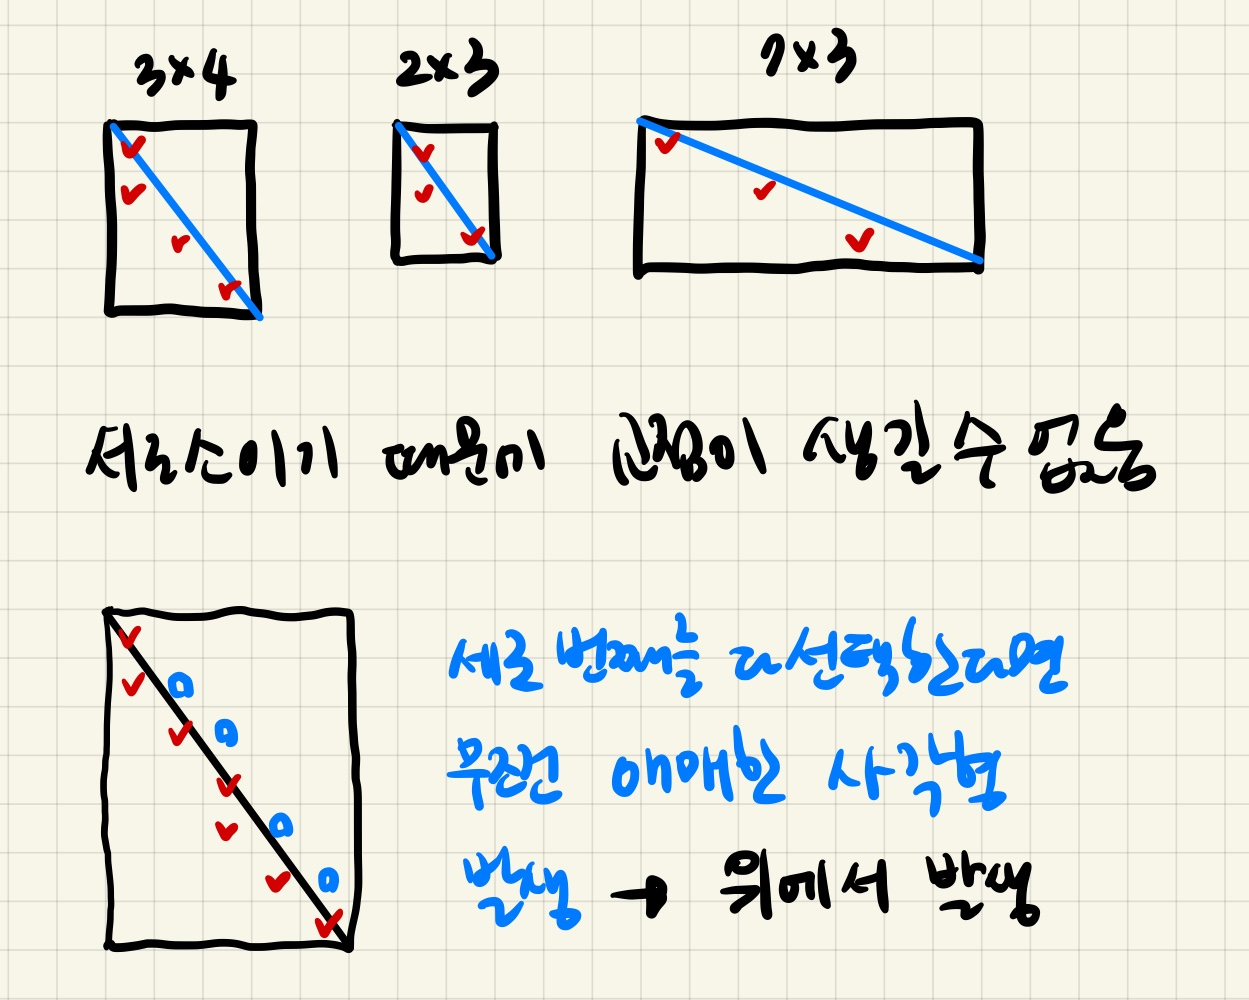 3×4 2×3 7×3
서로소이기 때문에 생길 수 없음
세로 번째를 다 선택한다면
무조건 애매한 사각형
발생 → 위에서 발생